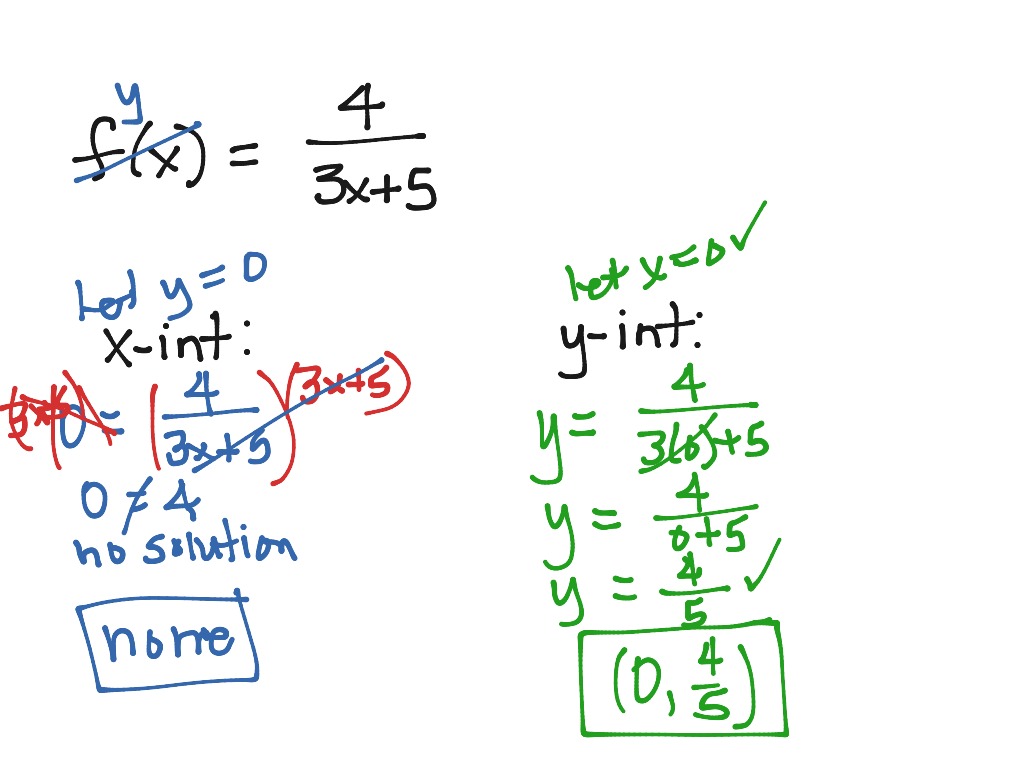 y
f(x) = 4/(3x+5)
Let y = 0
x-int:
(3x+5) 0 = (4/(3x+5)) (3x+5)
0 ≠ 4
no solution
none
let x=0 ✓
y-int:
y = 4/(3(0)+5)
y = 4/(0+5)
y = 4/5 ✓
(0, 4/5)